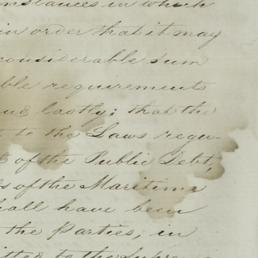 mstances in which
in order that it may
considerable sum
ble requirements
lastly: that the
t to the Laws regu-
of the Public Debt,
s of the Maritime
hall have been
the Parties, in